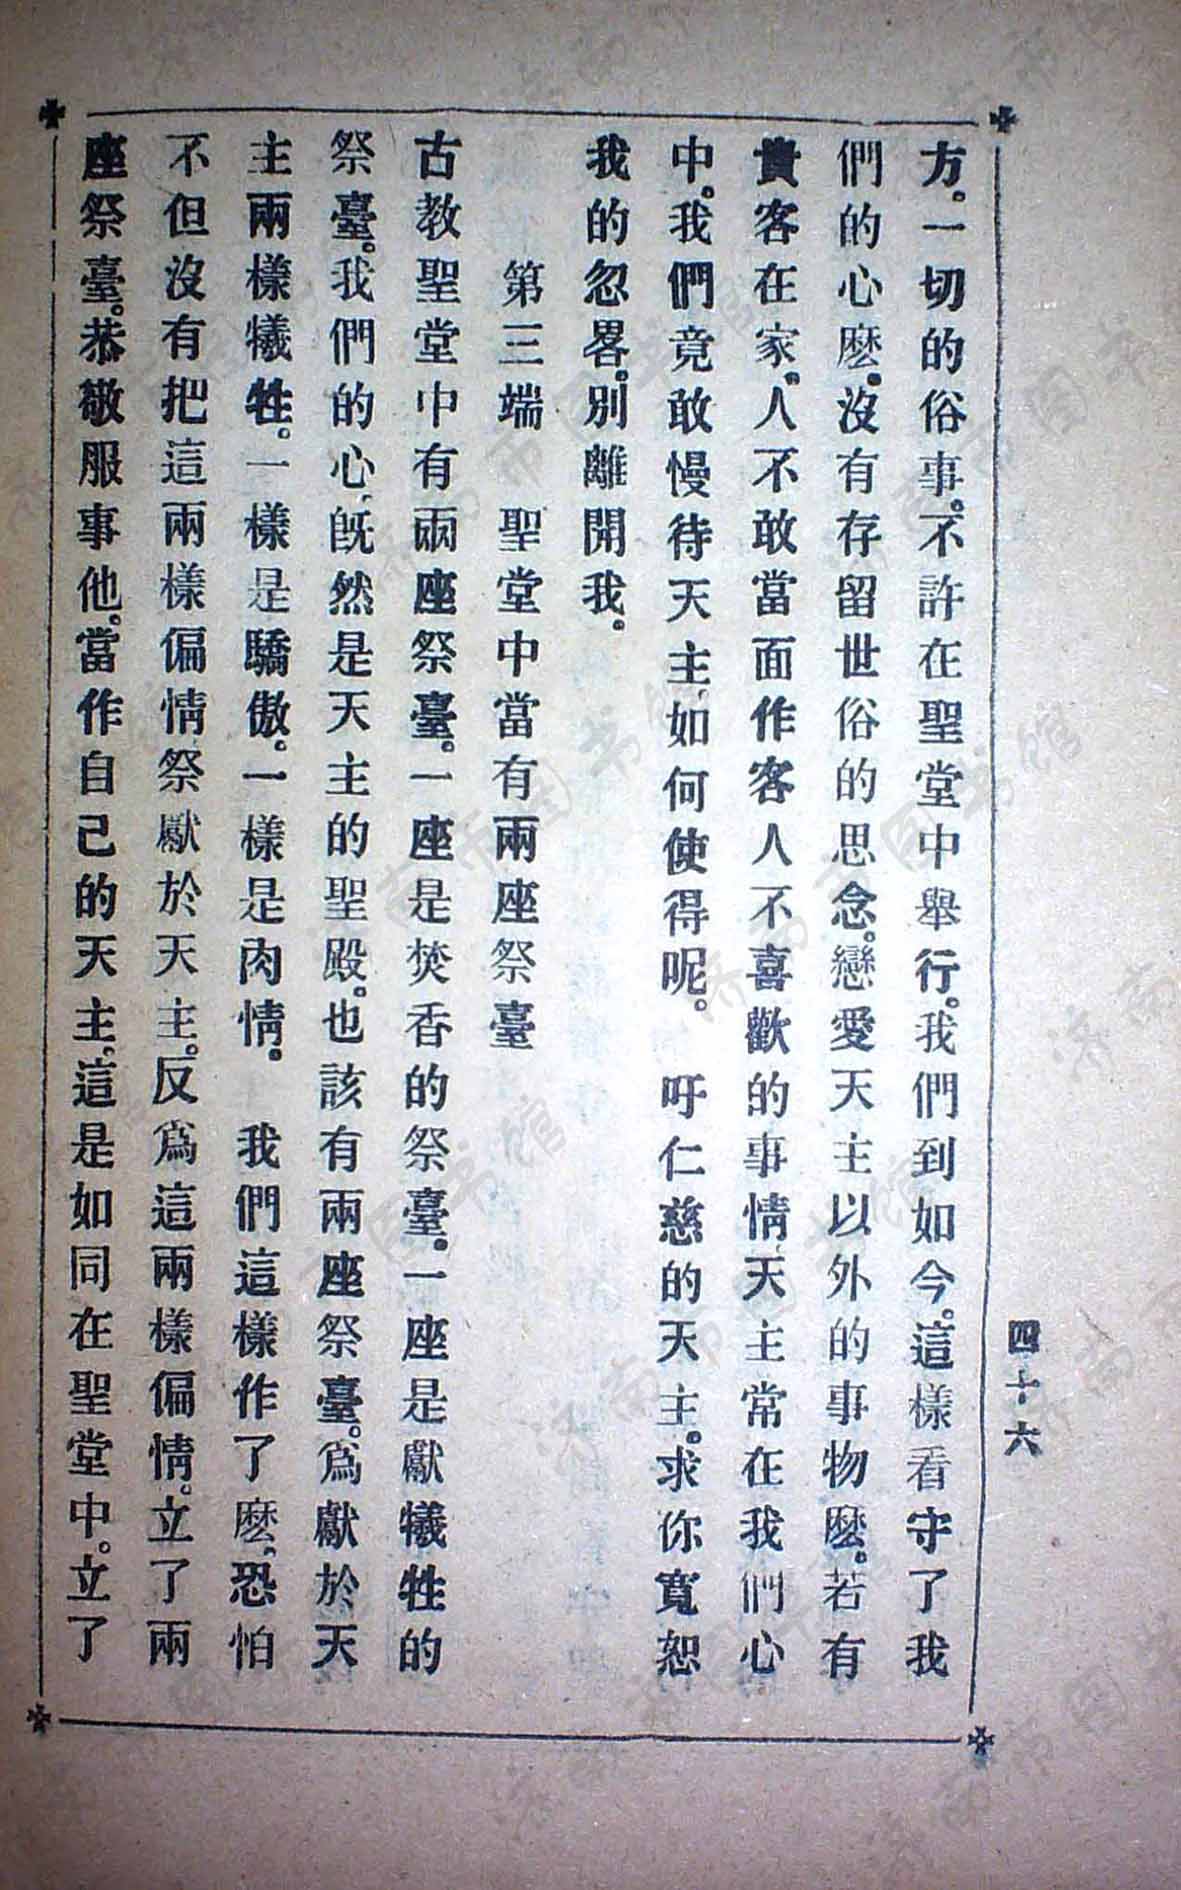 四十六
方。一切的俗事。不許在聖堂中舉行。我們到如今。這樣看守了我
們的心麽。沒有存留世俗的思念。戀愛天主以外的事物麽。若有
貴客在家。人不敢當面作客人不喜歡的事情、天主常在我們心
中。我們竟敢慢待天主、如何使得呢。　吁仁慈的天主。求你寬恕
我的忽畧。別離開我。
第三端　聖堂中當有兩座祭臺
古教聖堂中有兩座祭臺。一座是焚香的祭臺。一座是獻犧牲的
祭臺。我們的心、旣然是天主的聖殿。也該有兩座祭臺。爲獻於天
主兩樣犧牲。一樣是驕傲。一樣是肉情。　我們這樣作了麽、恐怕
不但沒有把這兩樣偏情祭獻於天主。反爲這兩樣偏情。立了兩
座祭臺。恭敬服事他。當作自己的天主、這是如同在聖堂中。立了
济南市图书馆